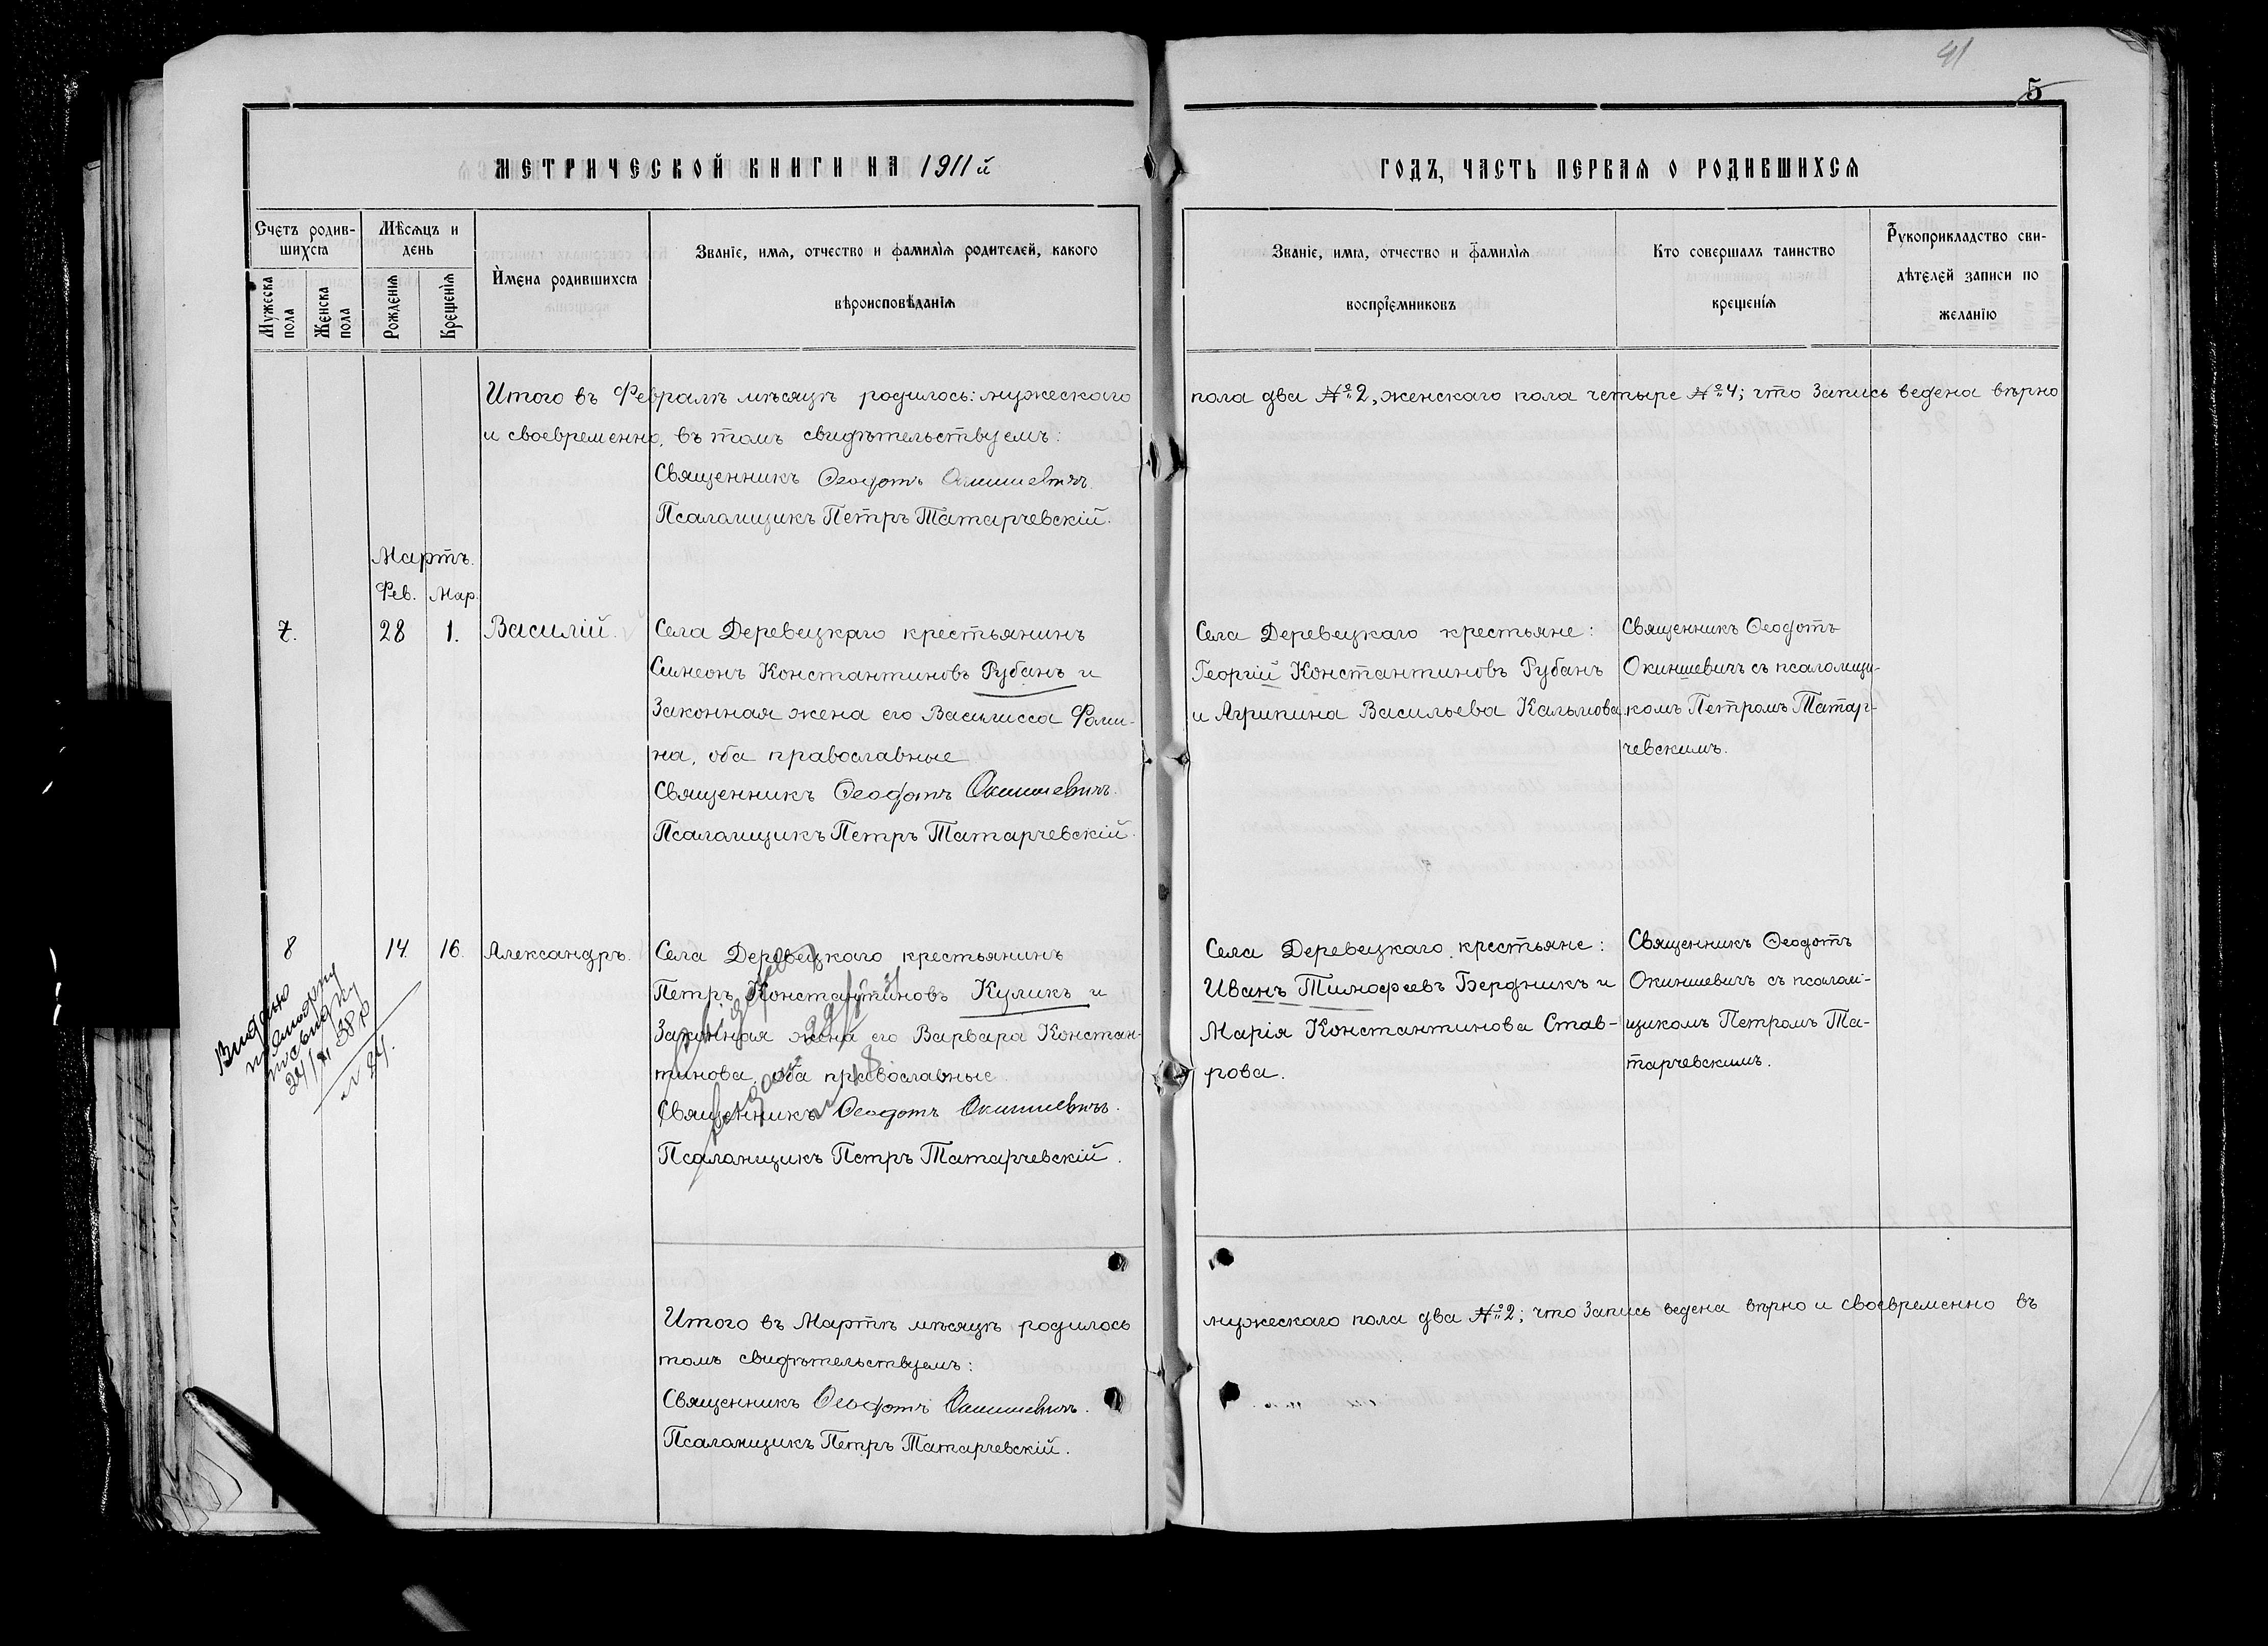 41
5
МЕТРИЧЕСКОЙ КНИГИ НА 1911й
ГОДЪ, ЧАСТЬ ПЕРВАЯ О РОДИВШИХСЯ
Счетъ родив-
шихся
Мужеска пола
Женска пола
Мѣсяцъ и
день
Рожденія
Крещенія
Имена родившихся
Званіе, имя, отчество и фамилія родителей, какого
вѣроисповѣданія
Званіе, имя, отчество и фамилія
воспріемниковъ
Кто совершалъ таинство
крещенія
Рукоприкладство сви-
дѣтелей записи по
желанію
Итого въ Февралѣ мѣсяцѣ родилось: мужескаго
пола два №2, женскаго пола четыре №4; что запись ведена вѣрно
и своевременно, въ томъ свидѣтельствуемъ:
Священникъ Ѳеодотъ Окиншевичъ.
Псаломщикъ Петръ Татарчевскій.
Мартъ.
Фев. Мар.
7. 28 1. Василій.
Села Деревецкаго крестьянинъ
Симеонъ Константиновъ Рубанъ и
Законная жена его Василисса Фоми-
на, оба православные
Священникъ Ѳеодотъ Окиншевичъ.
Псаломщикъ Петръ Татарчевскій.
Села Деревецкаго крестьяне:
Георгій Константиновъ Рубанъ
и Агрипина Васильева Кальмова.
Священникъ Ѳеодотъ
Окиншевичъ съ псаломщи-
комъ Петромъ Татар-
чевскимъ.
8 14. 16. Александръ.
Села Деревецкаго крестьянинъ
Петръ Константиновъ Куликъ и
Законная жена его Варвара Констан-
тинова, оба православные.
Священникъ Ѳеодотъ Окиншевичъ.
Псаломщикъ Петръ Татарчевскій.
Села Деревецкаго крестьяне:
Иванъ Тимофеевъ Бердникъ и
Марія Константинова Став-
рова.
Священникъ Ѳеодотъ
Окиншевичъ съ псалом-
щикомъ Петромъ Та-
тарчевскимъ.
Итого въ Мартѣ мѣсяцѣ родилось
мужескаго пола два №2; что запись ведена вѣрно и своевременно въ
томъ свидѣтельствуемъ:
Священникъ Ѳеодотъ Окиншевичъ.
Псаломщикъ Петръ Татарчевскій.